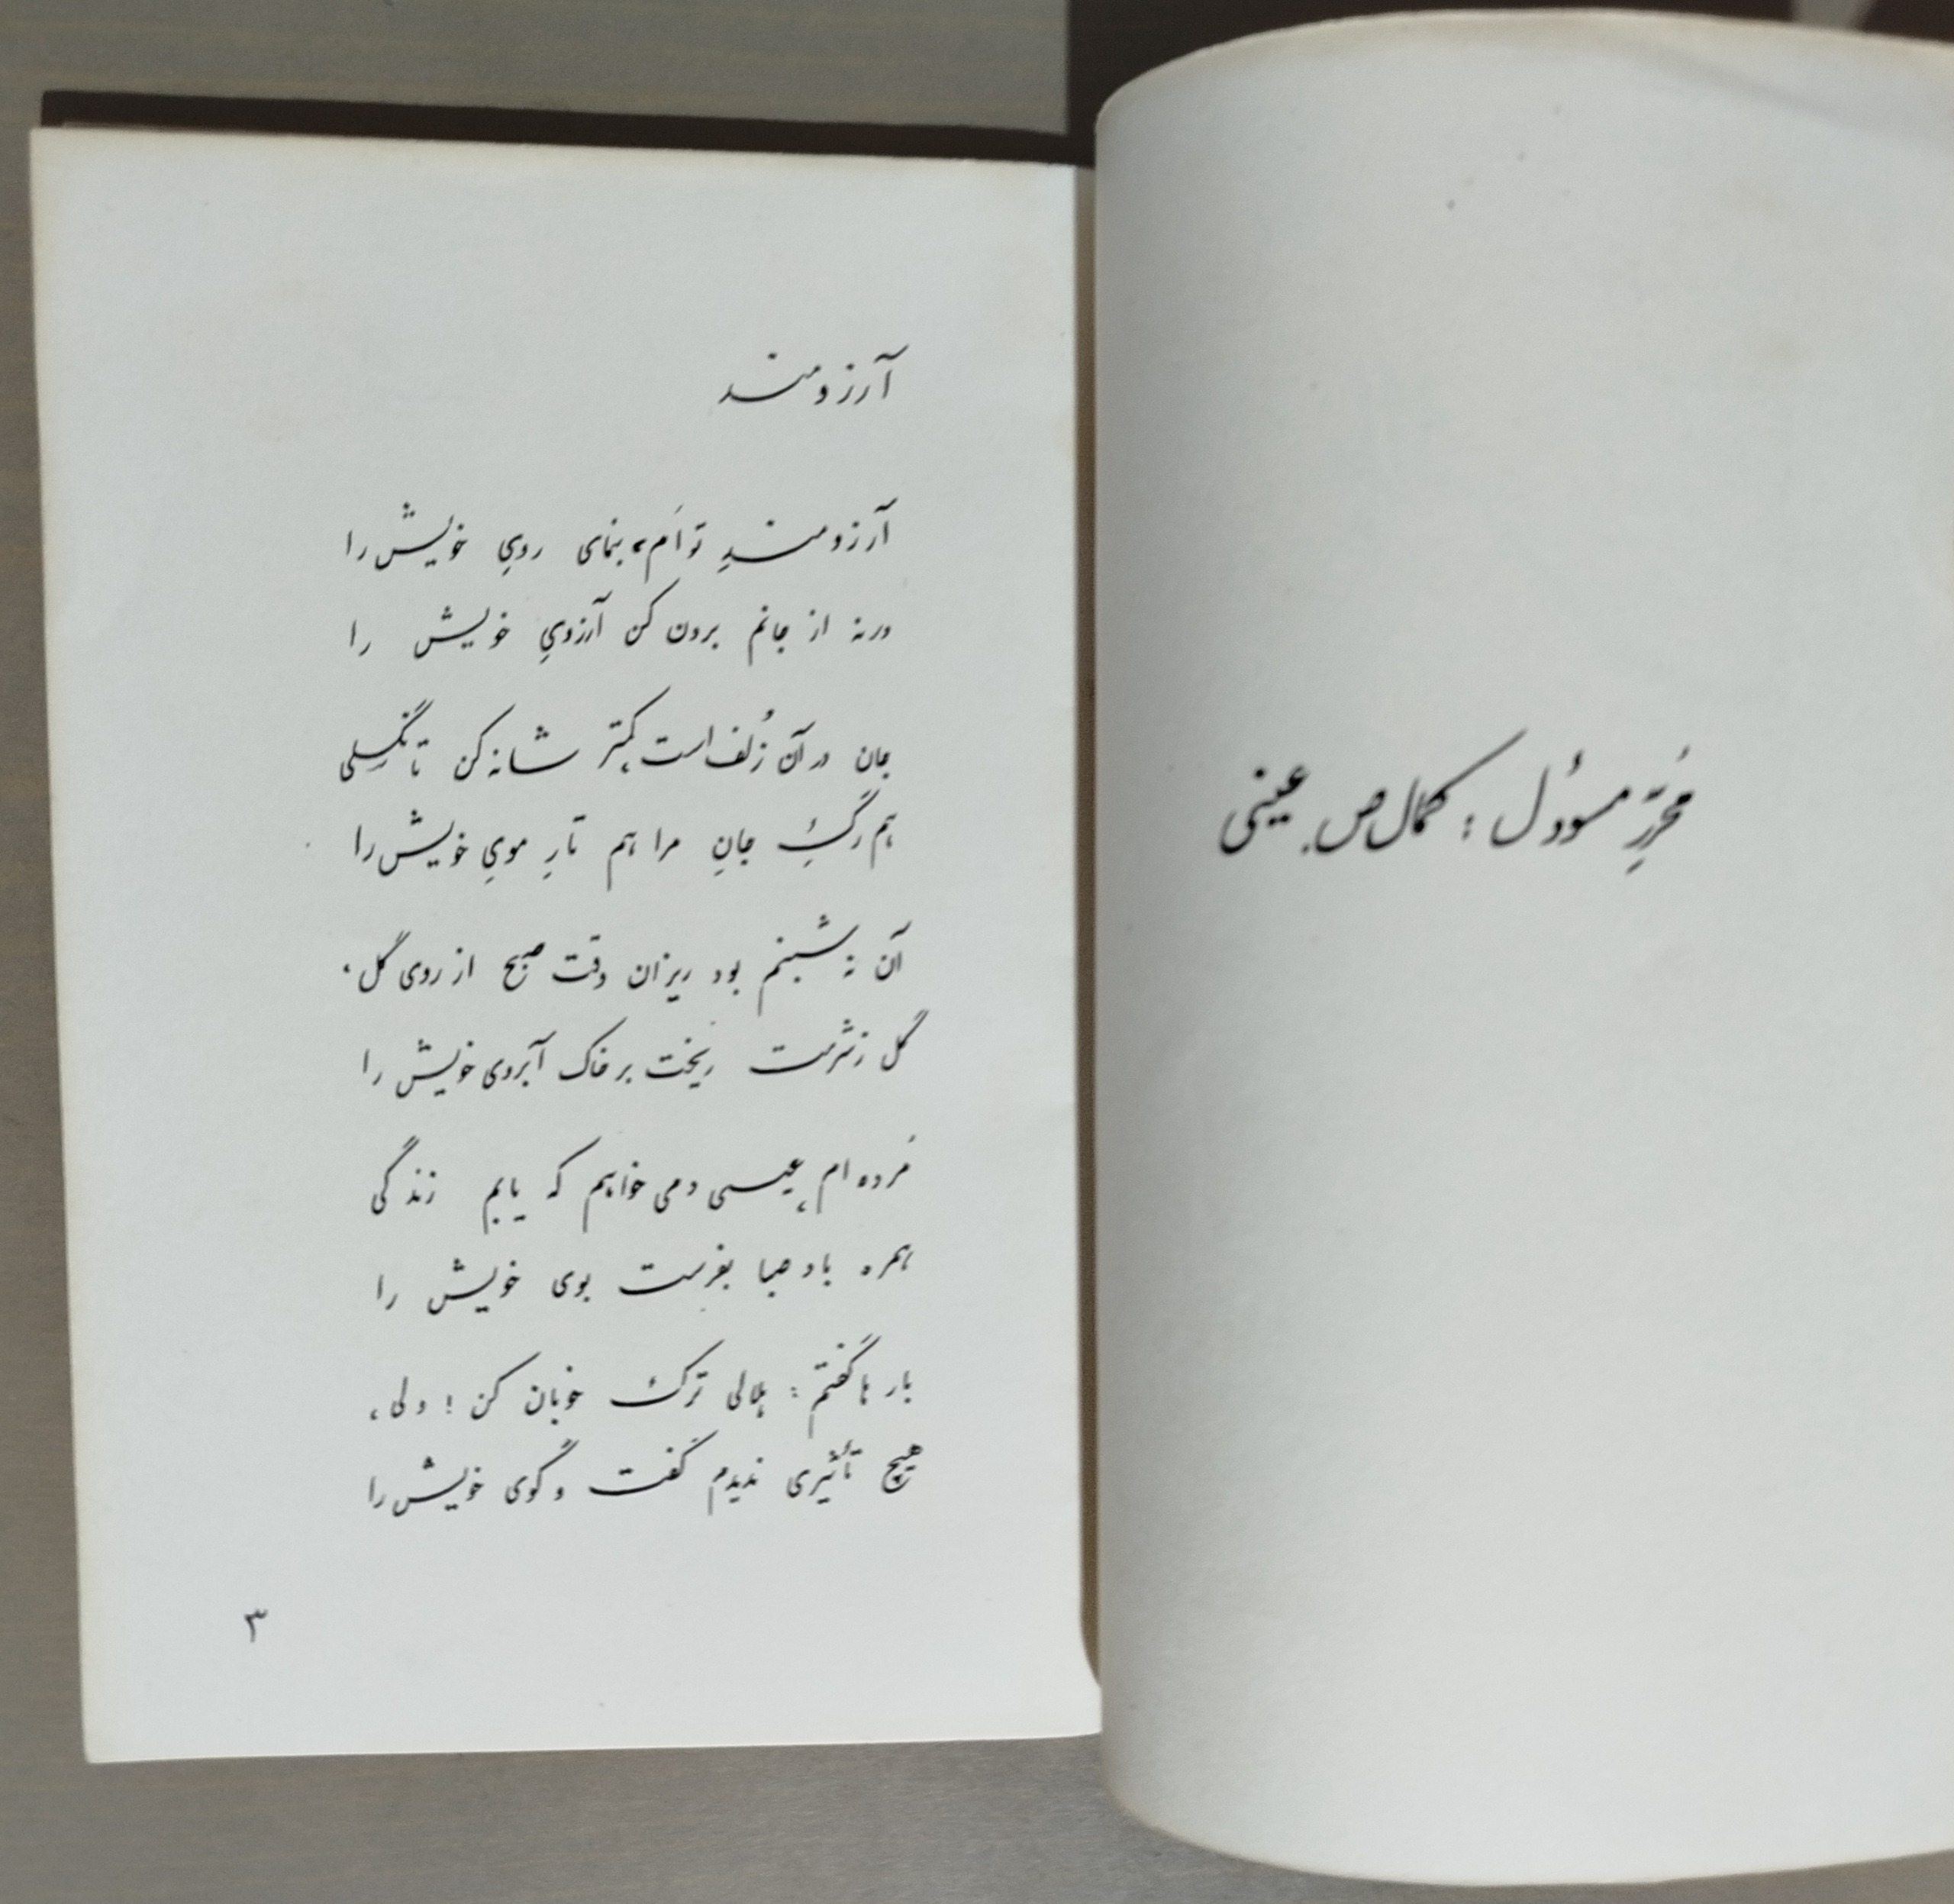 مُحَرِّرِ مسوؤل : کمال ص. عینی
آرزومند
آرزومندِ تواَم، بنمای رویِ خویش را
ورنه از جانم برون کن آرزویِ خویش را
جان در آن زُلف است، کمتر شانه کن تا نگسِلی
هم رگِ جانِ مرا هم تارِ مویِ خویش را
آن نه شبنم بود ریزان وقت صبح از روی گل،
گل ز شرمت ریخت بر خاک آبروی خویش را
مُرده ام، عیسی دمی خواهم که یابم زندگی
همره باد صبا بفرست بوی خویش را
بارها گفتم : هلالی ترک خوبان کن ! ولی،
هیچ تأثیری ندیدم گفت و گوی خویش را
۳